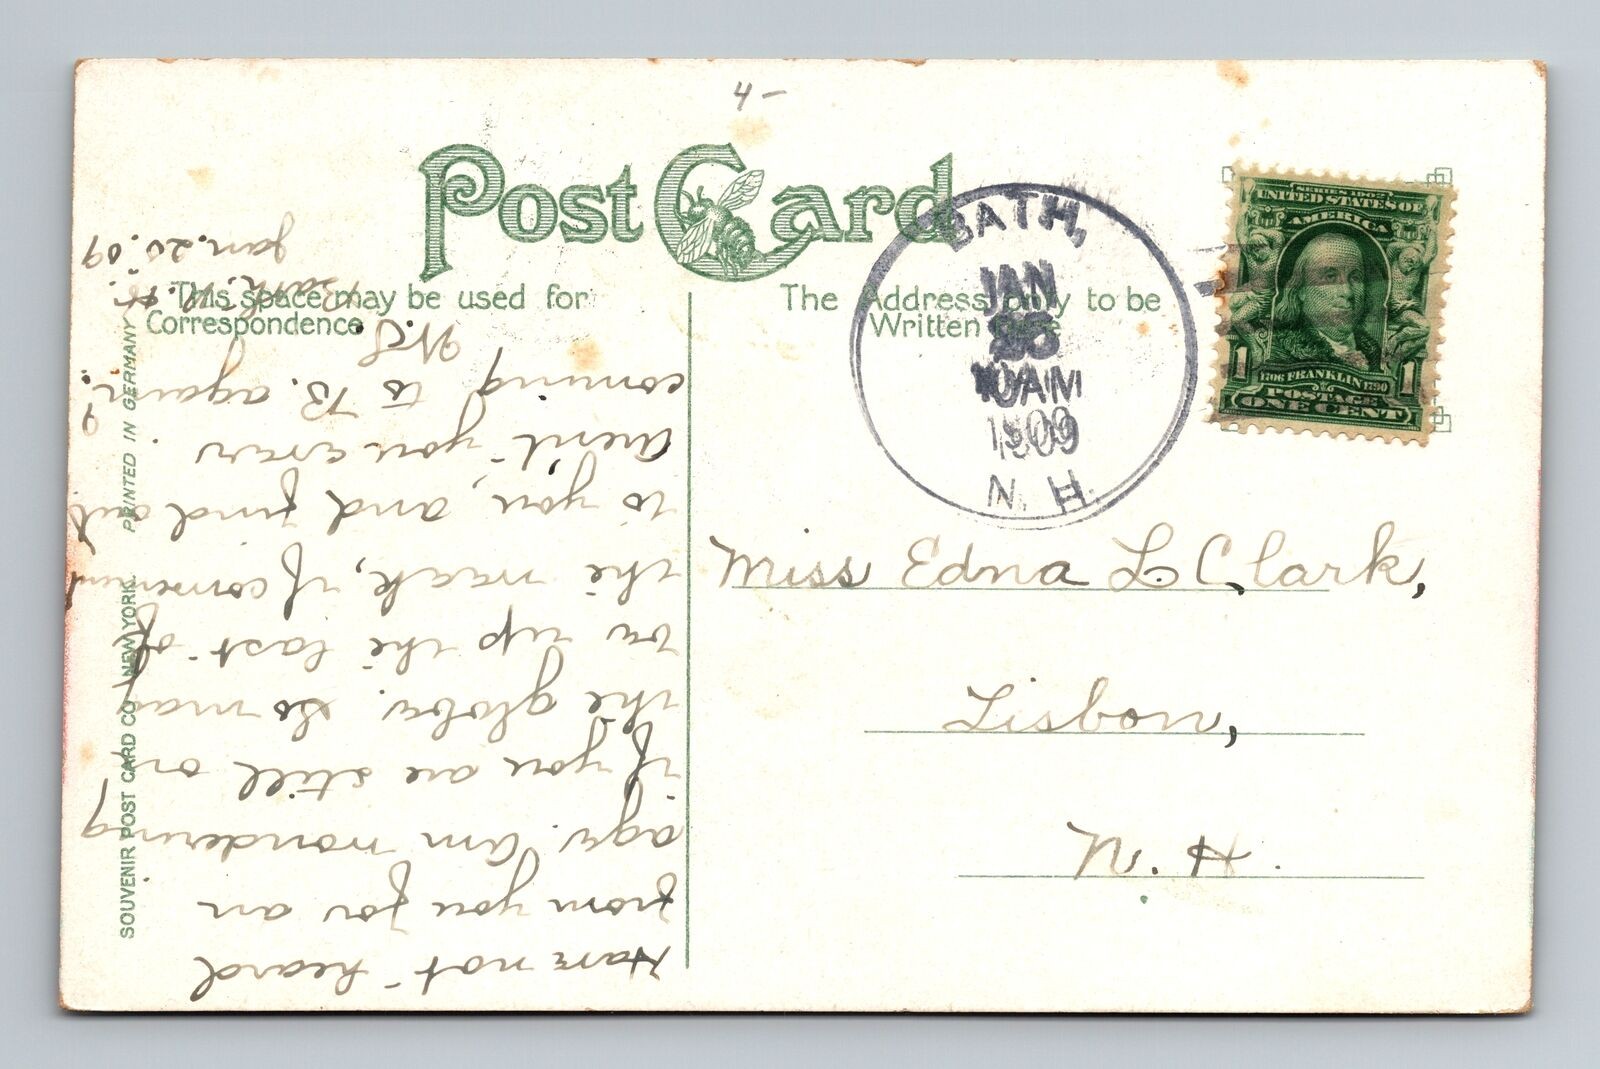 4-
Post Card
This space may be used for
Correspondence.
The Address only to be
Written Here
BATH,
JAN
25
10 AM
1909
N. H.
SERIES 1902
UNITED STATES OF
AMERICA
1706 FRANKLIN 1790
1 POSTAGE 1
ONE CENT
Miss Edna L. Clark,
Lisbon,
N. H.
Have not heard
from you for an
age. Am wondering
if you are still on
the globe. So may
up the last of
the week, if convenient
to you, and find out.
Aren't you ever
coming to B. again?
Bath, N. H.
Jan. 25, 09
SOUVENIR POST CARD CO. NEW YORK. PRINTED IN GERMANY